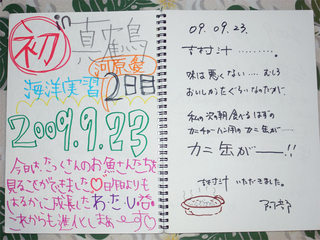 初 in 真鶴
河原愛
海洋実習 2日目
2009.9.23
今日は、たっくさんのお魚さんたちを
見ることができました♡昨日よりも
はるかに成長したわ・た・し・谷
これからも進化しまぁーす♡
09. 09. 23.
吉村汁………。
味は悪くない…… むしろ
おいしかたぐらいなのだが、
私の次の朝食べるはずの
カニチャーハン用のカニ缶が……
カニ缶がーーー!!
吉村汁 いただきました。